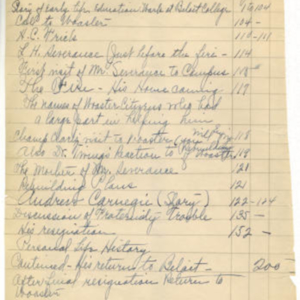 Story of early life Education Work at Beloit College 79, 104
Call to Wooster 104-
H.C. Frick 110-111
L.H. Severance (Just before the fire - 114
First visit of Mr. Severance to Campus 115
The Fire - His Home coming 117
The names of Wooster Citizens who had
a large part in helping him
Champ Clark's visit to Wooster 118
Also Dr. reaction to Wooster 119
The Workers of Mr. Severance 121
Rebuilding Plans 121
Andrew Carnegie (Story) 122-124
Discussion of Fraternity Trouble 135-
His resignation 152-
Personal Life History
Continued - His return to Beloit - 200
After final resignation Return to
Wooster